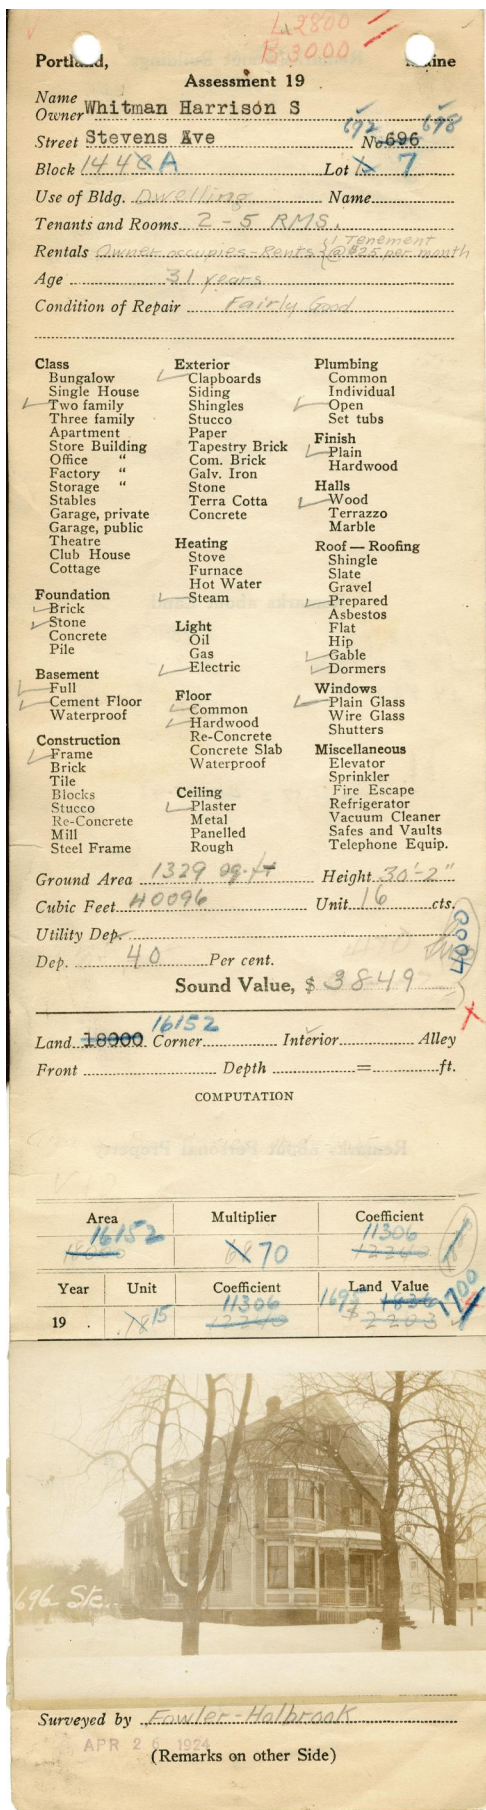 L 2800
B 3000
Portland, Maine
Assessment 19
Name
Owner Whitman Harrison S
692 698
Street Stevens Ave No 696
Block 144 A Lot 7
Use of Bldg. Dwelling Name
Tenants and Rooms 2 - 5 RMS.
Rentals Owner occupies - Rents 1 Tenement @ $25 per month
Age 31 years
Condition of Repair Fairly Good
Class
Bungalow
Single House
Two family
Three family
Apartment
Store Building
Office "
Factory "
Storage "
Stables
Garage, private
Garage, public
Theatre
Club House
Cottage
Foundation
Brick
Stone
Concrete
Pile
Basement
Full
Cement Floor
Waterproof
Construction
Frame
Brick
Tile
Blocks
Stucco
Re-Concrete
Mill
Steel Frame
Exterior
Clapboards
Siding
Shingles
Stucco
Paper
Tapestry Brick
Com. Brick
Galv. Iron
Stone
Terra Cotta
Concrete
Heating
Stove
Furnace
Hot Water
Steam
Light
Oil
Gas
Electric
Floor
Common
Hardwood
Re-Concrete
Concrete Slab
Waterproof
Ceiling
Plaster
Metal
Panelled
Rough
Plumbing
Common
Individual
Open
Set tubs
Finish
Plain
Hardwood
Halls
Wood
Terrazzo
Marble
Roof — Roofing
Shingle
Slate
Gravel
Prepared
Asbestos
Flat
Hip
Gable
Dormers
Windows
Plain Glass
Wire Glass
Shutters
Miscellaneous
Elevator
Sprinkler
Fire Escape
Refrigerator
Vacuum Cleaner
Safes and Vaults
Telephone Equip.
Ground Area 1329 sq. ft Height 30'-2"
Cubic Feet 40096 Unit 16 cts.
Utility Dep.
4000
Dep. 40 Per cent.
Sound Value, $ 3849
16152
Land 18000 Corner Interior Alley
Front Depth = ft.
COMPUTATION
Area Multiplier Coefficient
16152 70 11306
Year Unit Coefficient Land Value
19 . 15 11306 1695 1700
696 Ste.
Surveyed by Fowler-Holbrook
APR 26 1924
(Remarks on other Side)